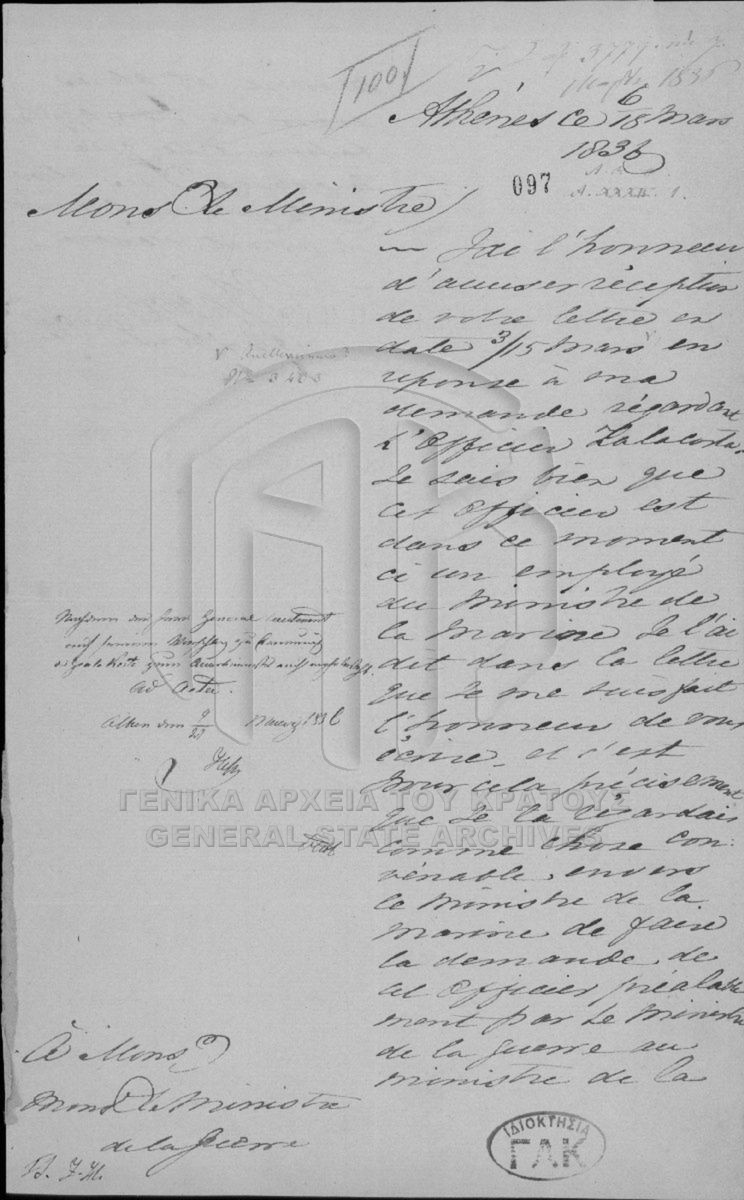 100
1836
Athènes ce 6/18 Mars
1836
097
A. XXXII. 1.
Monsr. le Ministre
— J'ai l'honneur
d'accuser réception
de votre lettre en
date 3/15 Mars en
reponse à ma
demande régardant
L'Officier Zalacosta.
Je sais bien que
cet Officier est
dans ce moment
ci un employé
du Ministre de
la Marine Je l'ai
dit dans la lettre
que Je me suis fait
l'honneur de vous
écrire, et c'est
pour cela précisement
que Je la regardais
comme chose con-
vénable, envers
le Ministre de la
Marine de faire
la demande de
cet Officier préalable
ment par le Ministre
de la Guerre au
Ministre de la
No 3403
Nachdem der Herr General Lieutenant
ad acta.
Athen den 9/21 Maerz 1836
À Monsr.
Monsr. le Ministre
de la Guerre
ΓΕΝΙΚΑ ΑΡΧΕΙΑ ΤΟΥ ΚΡΑΤΟΥΣ
GENERAL STATE ARCHIVES
ΙΔΙΟΚΤΗΣΙΑ
ΓΑΚ